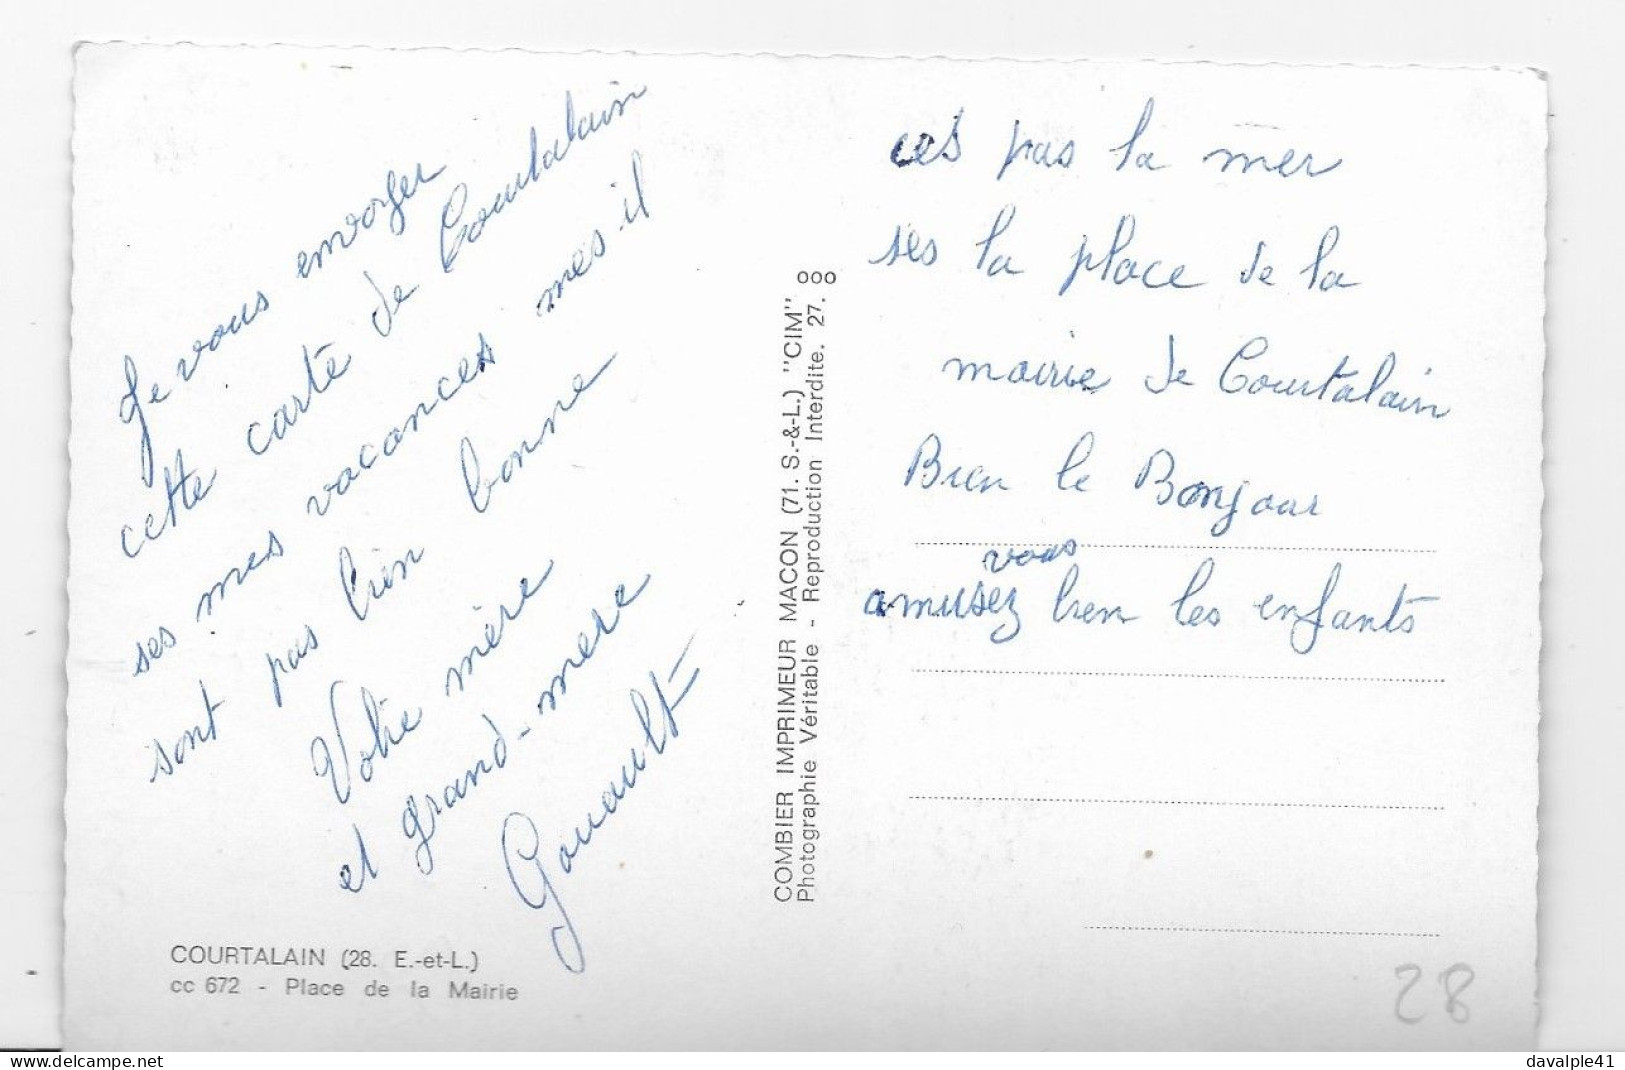 Je vous envoyer
cette carte de Courtalain
ses mes vacances mes il
sont pas bien bonne
Votre mère
et grand-mere
Gouault
COURTALAIN (28. E.-et-L.)
cc 672 - Place de la Mairie
COMBIER IMPRIMEUR MACON (71. S.-&-L.) "CIM"
Photographie Véritable - Reproduction Interdite. 27.
ces pas la mer
ses la place de la
mairie de Courtalain
Bien le Bonjour
vous
amusez bien les enfants
28
davalple41